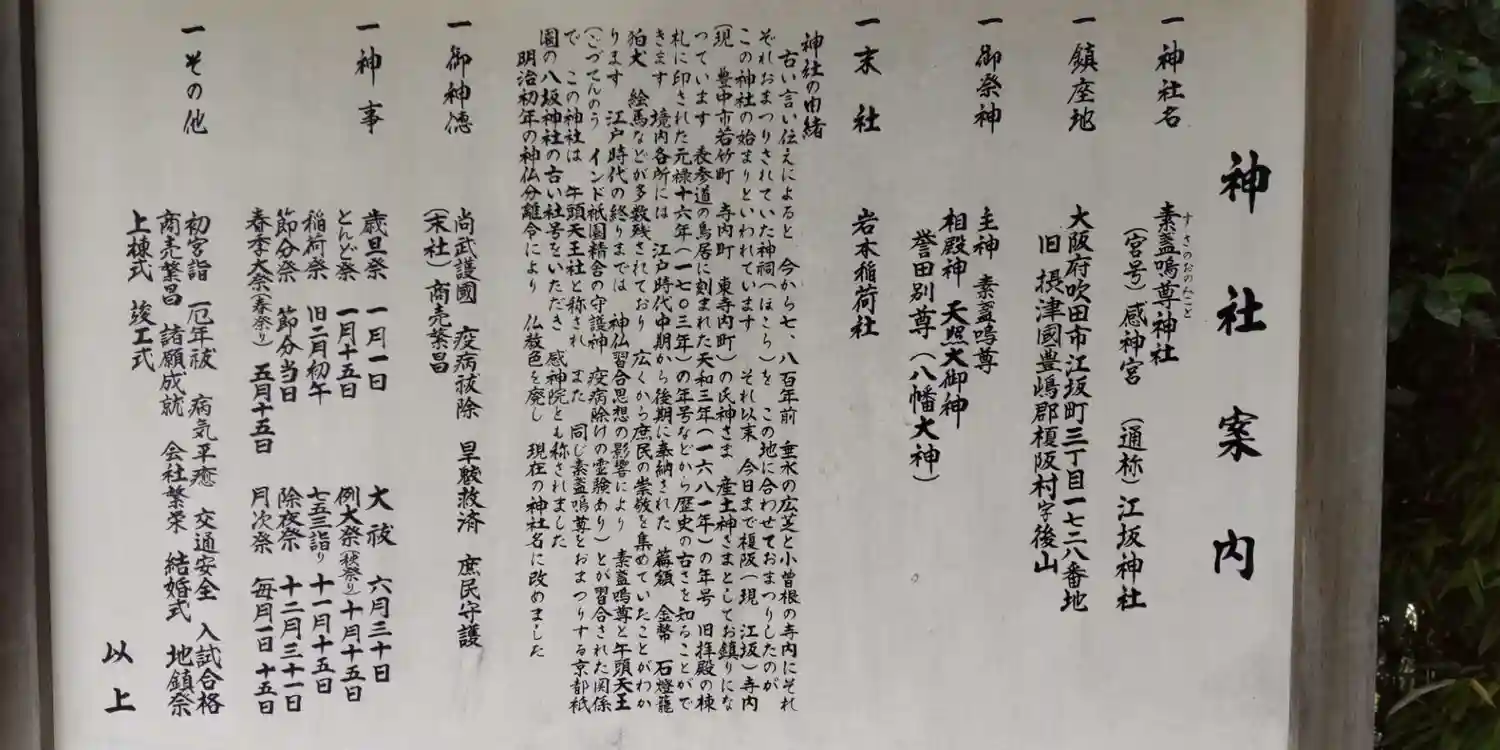 神社案内
一 神社名 素盞嗚尊神社
すさのおのみこと
(宮号)感神宮 (通称)江坂神社
一 鎮座地 大阪府吹田市江坂町三丁目一七二八番地
旧 摂津國豊嶋郡榎阪村字後山
一 御祭神 主神 素盞嗚尊
相殿神 天照大御神
誉田別尊(八幡大神)
一 末社 岩本稲荷社
神社の由緒
古い言い伝えによると 今から七、八百年前 垂水の広芝と小曽根の寺内にそれ
ぞれおまつりされていた神祠(ほこら)を この地に合わせておまつりしたのが
この神社の始まりといわれています それ以来 今日まで榎阪(現 江坂)寺内
(現 豊中市若竹町 寺内町 東寺内町)の氏神さま 産土神さまとしてお鎮りにな
っています 表参道の鳥居に刻まれた天和三年(一六八一年)の年号 旧拝殿の棟
札に印された元禄十六年(一七〇三年)の年号などから歴史の古さを知ることがで
きます 境内各所には 江戸時代中期から後期に奉納された 扁額 金幣 石燈籠
狛犬 絵馬などが多数残されており 広くから庶民の崇敬を集めていたことがわか
ります 江戸時代の終りまでは 神仏習合思想の影響により 素盞嗚尊と午頭天王
(ごづてんのう インド祇園精舎の守護神 疫病除けの霊験あり)とが習合された関係
で この神社は 午頭天王社と称され また 同じ素盞嗚尊をおまつりする京都祇
園の八坂神社の古い社号をいただき 感神院とも称されました
明治初年の神仏分離令により 仏教色を廃し 現在の神社名に改めました
一 御神徳 尚武護國 疫病祓除 早駿救済 庶民守護
(末社)商売繁昌
一 神事 歳旦祭 一月一日 大祓 六月三十日
とんど祭 一月十五日 例大祭(秋祭り)十月十五日
稲荷祭 旧二月初午 七五三詣り 十一月十五日
節分祭 節分当日 除夜祭 十二月三十一日
春季大祭(春祭り) 五月十五日 月次祭 毎月一日 十五日
一 その他 初宮詣 厄年祓 病気平癒 交通安全 入試合格
商売繁昌 諸願成就 会社繁栄 結婚式 地鎮祭
上棟式 竣工式
以上